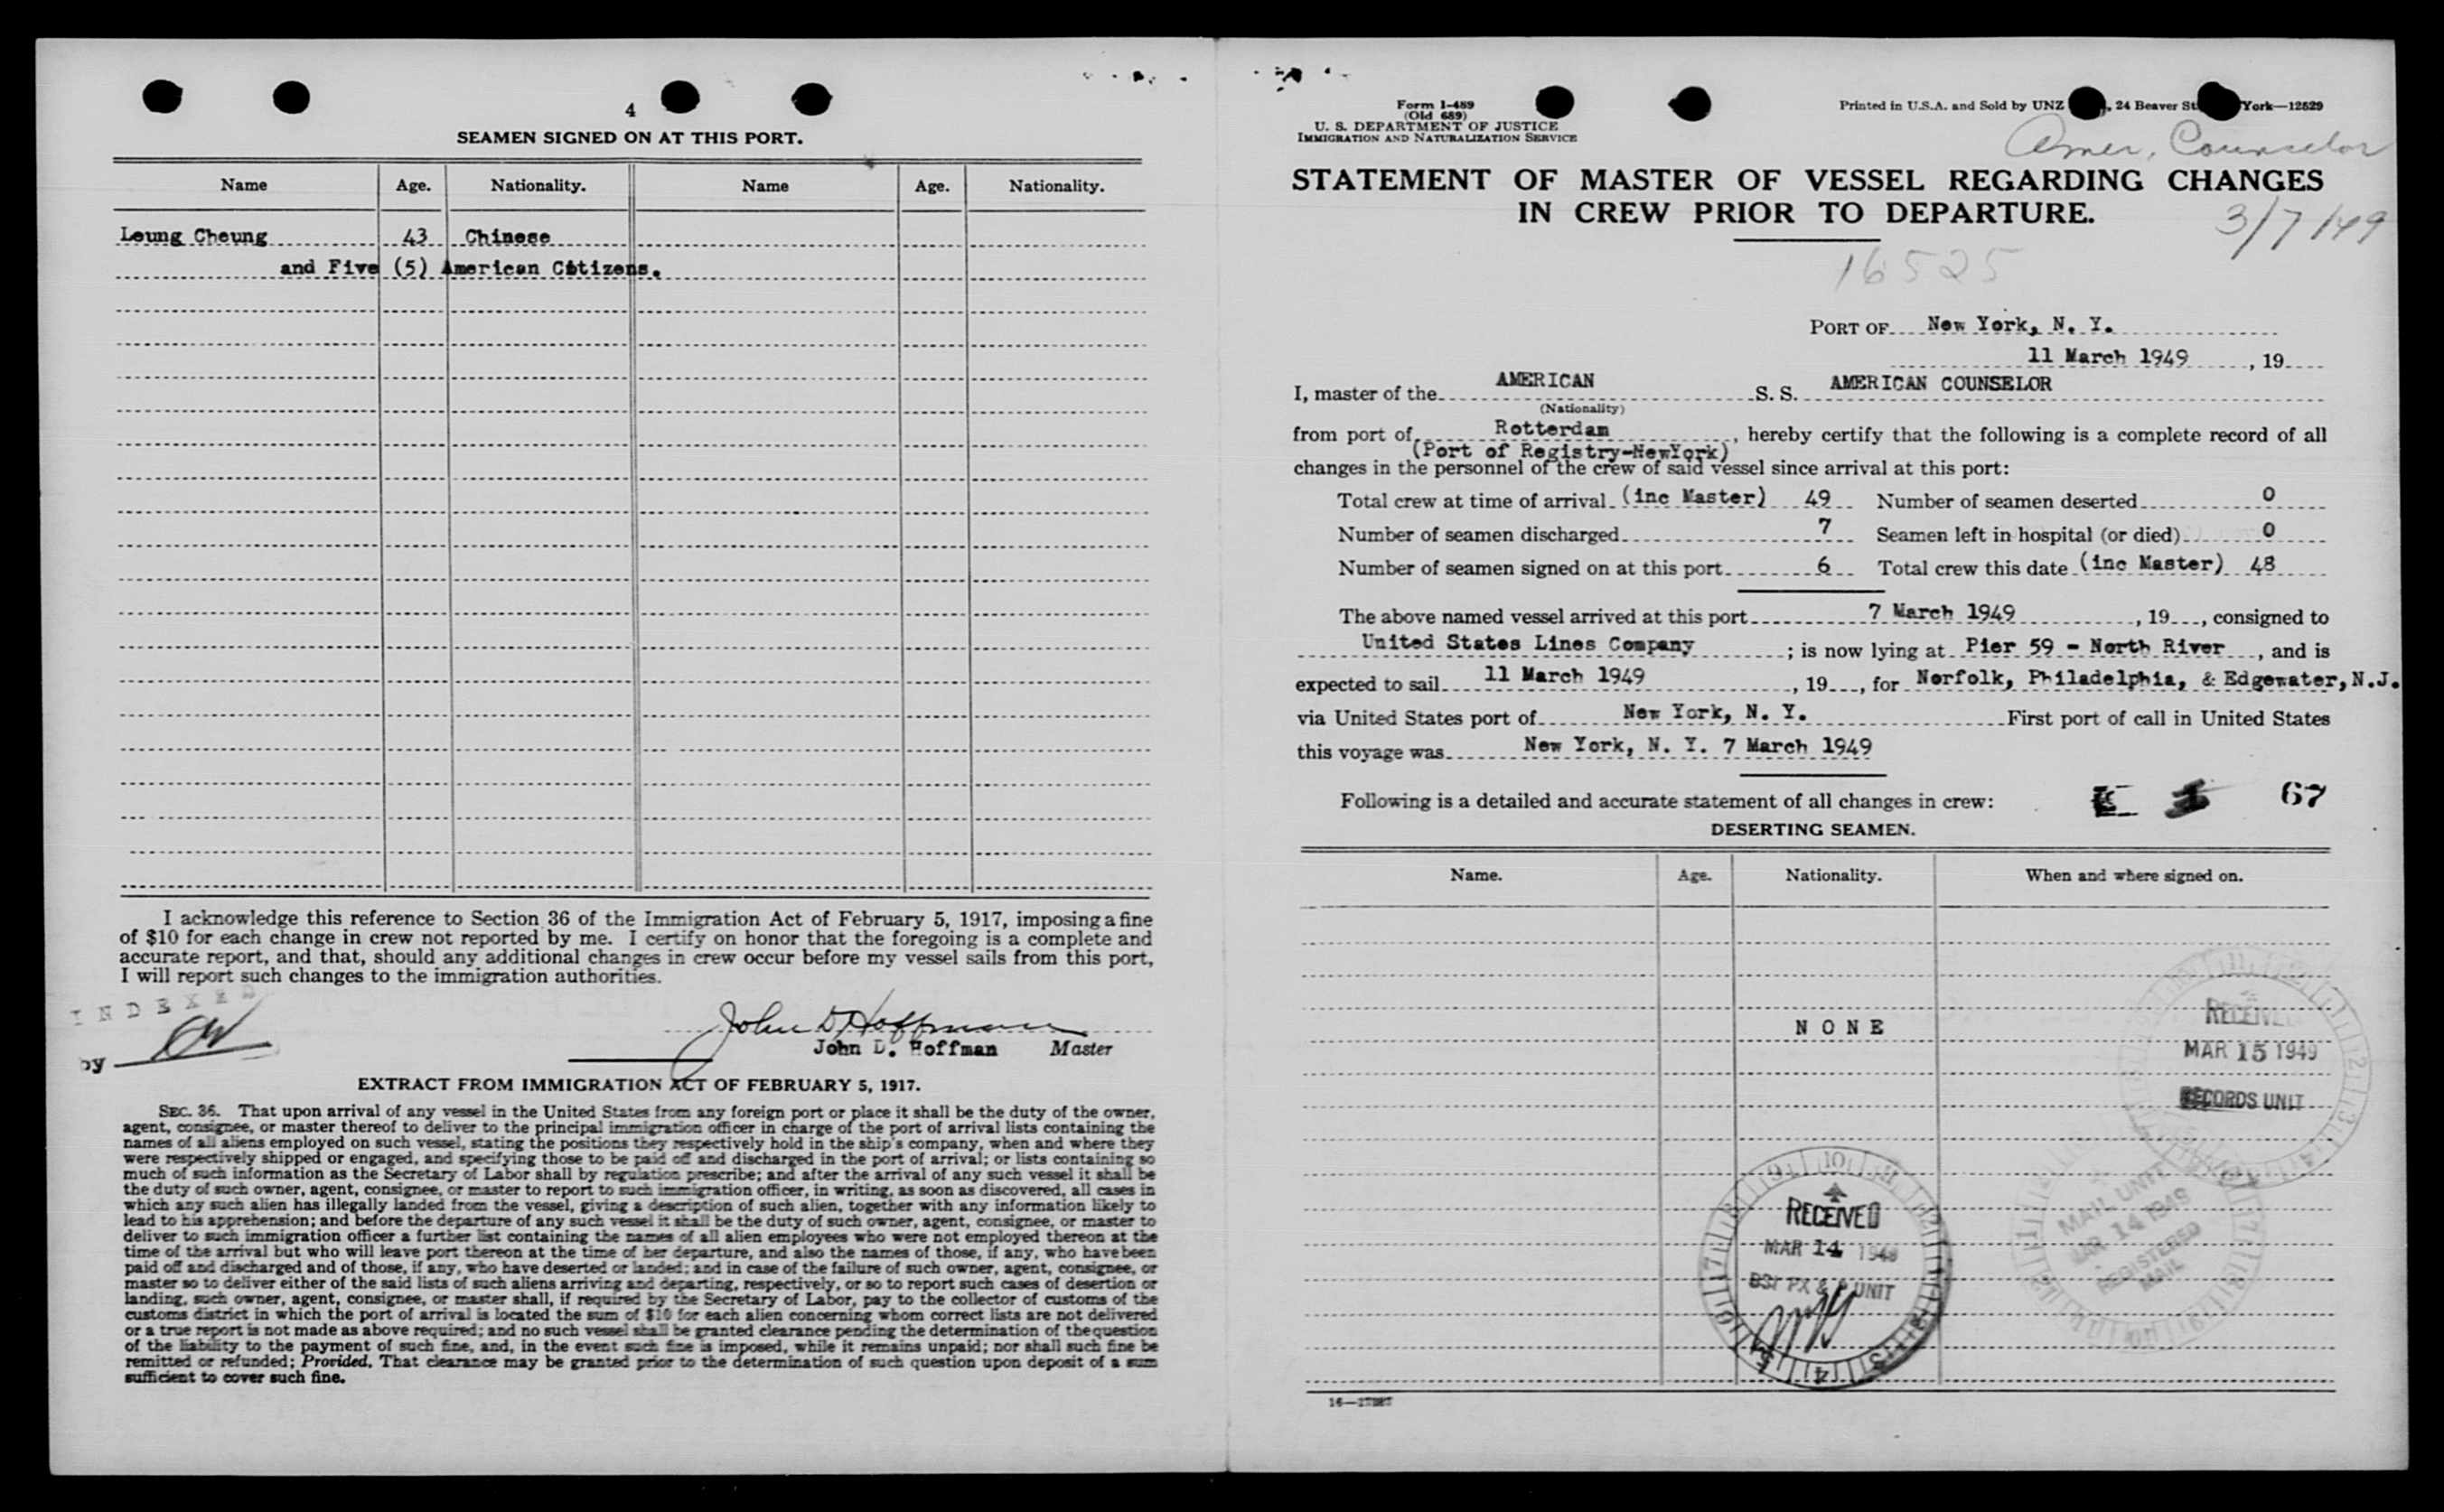 4
SEAMEN SIGNED ON AT THIS PORT.
Name Age. Nationality. Name Age. Nationality.
Leung Cheung 43 Chinese
and Five (5) American Citizens.
I acknowledge this reference to Section 36 of the Immigration Act of February 5, 1917, imposing a fine
of $10 for each change in crew not reported by me. I certify on honor that the foregoing is a complete and
accurate report, and that, should any additional changes in crew occur before my vessel sails from this port,
I will report such changes to the immigration authorities.
INDEXED
by
John D. Hoffman
John D. Hoffman Master
EXTRACT FROM IMMIGRATION ACT OF FEBRUARY 5, 1917.
SEC. 36. That upon arrival of any vessel in the United States from any foreign port or place it shall be the duty of the owner,
agent, consignee, or master thereof to deliver to the principal immigration officer in charge of the port of arrival lists containing the
names of all aliens employed on such vessel, stating the positions they respectively hold in the ship's company, when and where they
were respectively shipped or engaged, and specifying those to be paid off and discharged in the port of arrival; or lists containing so
much of such information as the Secretary of Labor shall by regulation prescribe; and after the arrival of any such vessel it shall be
the duty of such owner, agent, consignee, or master to report to such immigration officer, in writing, as soon as discovered, all cases in
which any such alien has illegally landed from the vessel, giving a description of such alien, together with any information likely to
lead to his apprehension; and before the departure of any such vessel it shall be the duty of such owner, agent, consignee, or master to
deliver to such immigration officer a further list containing the names of all alien employees who were not employed thereon at the
time of the arrival but who will leave port thereon at the time of her departure, and also the names of those, if any, who have been
paid off and discharged and of those, if any, who have deserted or landed; and in case of the failure of such owner, agent, consignee, or
master so to deliver either of the said lists of such aliens arriving and departing, respectively, or so to report such cases of desertion or
landing, such owner, agent, consignee, or master shall, if required by the Secretary of Labor, pay to the collector of customs of the
customs district in which the port of arrival is located the sum of $10 for each alien concerning whom correct lists are not delivered
or a true report is not made as above required; and no such vessel shall be granted clearance pending the determination of the question
of the liability to the payment of such fine, and, in the event such fine is imposed, while it remains unpaid; nor shall such fine be
remitted or refunded; Provided, That clearance may be granted prior to the determination of such question upon deposit of a sum
sufficient to cover such fine.
Form I-489
(Old 689)
U. S. DEPARTMENT OF JUSTICE
IMMIGRATION AND NATURALIZATION SERVICE
Printed in U.S.A. and Sold by UNZ 24 Beaver St York—12529
Amer. Counselor
STATEMENT OF MASTER OF VESSEL REGARDING CHANGES
IN CREW PRIOR TO DEPARTURE.
3/7/49
16525
PORT OF New York, N. Y.
11 March 1949, 19
I, master of the AMERICAN S. S. AMERICAN COUNSELOR
(Nationality)
from port of Rotterdam, hereby certify that the following is a complete record of all
(Port of Registry-NewYork)
changes in the personnel of the crew of said vessel since arrival at this port:
Total crew at time of arrival (inc Master) 49 Number of seamen deserted 0
Number of seamen discharged 7 Seamen left in hospital (or died) 0
Number of seamen signed on at this port 6 Total crew this date (inc Master) 48
The above named vessel arrived at this port 7 March 1949, 19, consigned to
United States Lines Company; is now lying at Pier 59 - North River, and is
expected to sail 11 March 1949, 19, for Norfolk, Philadelphia, & Edgewater, N.J.
via United States port of New York, N. Y. First port of call in United States
this voyage was New York, N. Y. 7 March 1949
Following is a detailed and accurate statement of all changes in crew:
67
DESERTING SEAMEN.
Name. Age. Nationality. When and where signed on.
NONE
RECEIVED
MAR 15 1949
RECORDS UNIT
RECEIVED
MAR 14 1949
UNIT
MAIL UNIT
MAR 14 1949
REGISTERED
MAIL